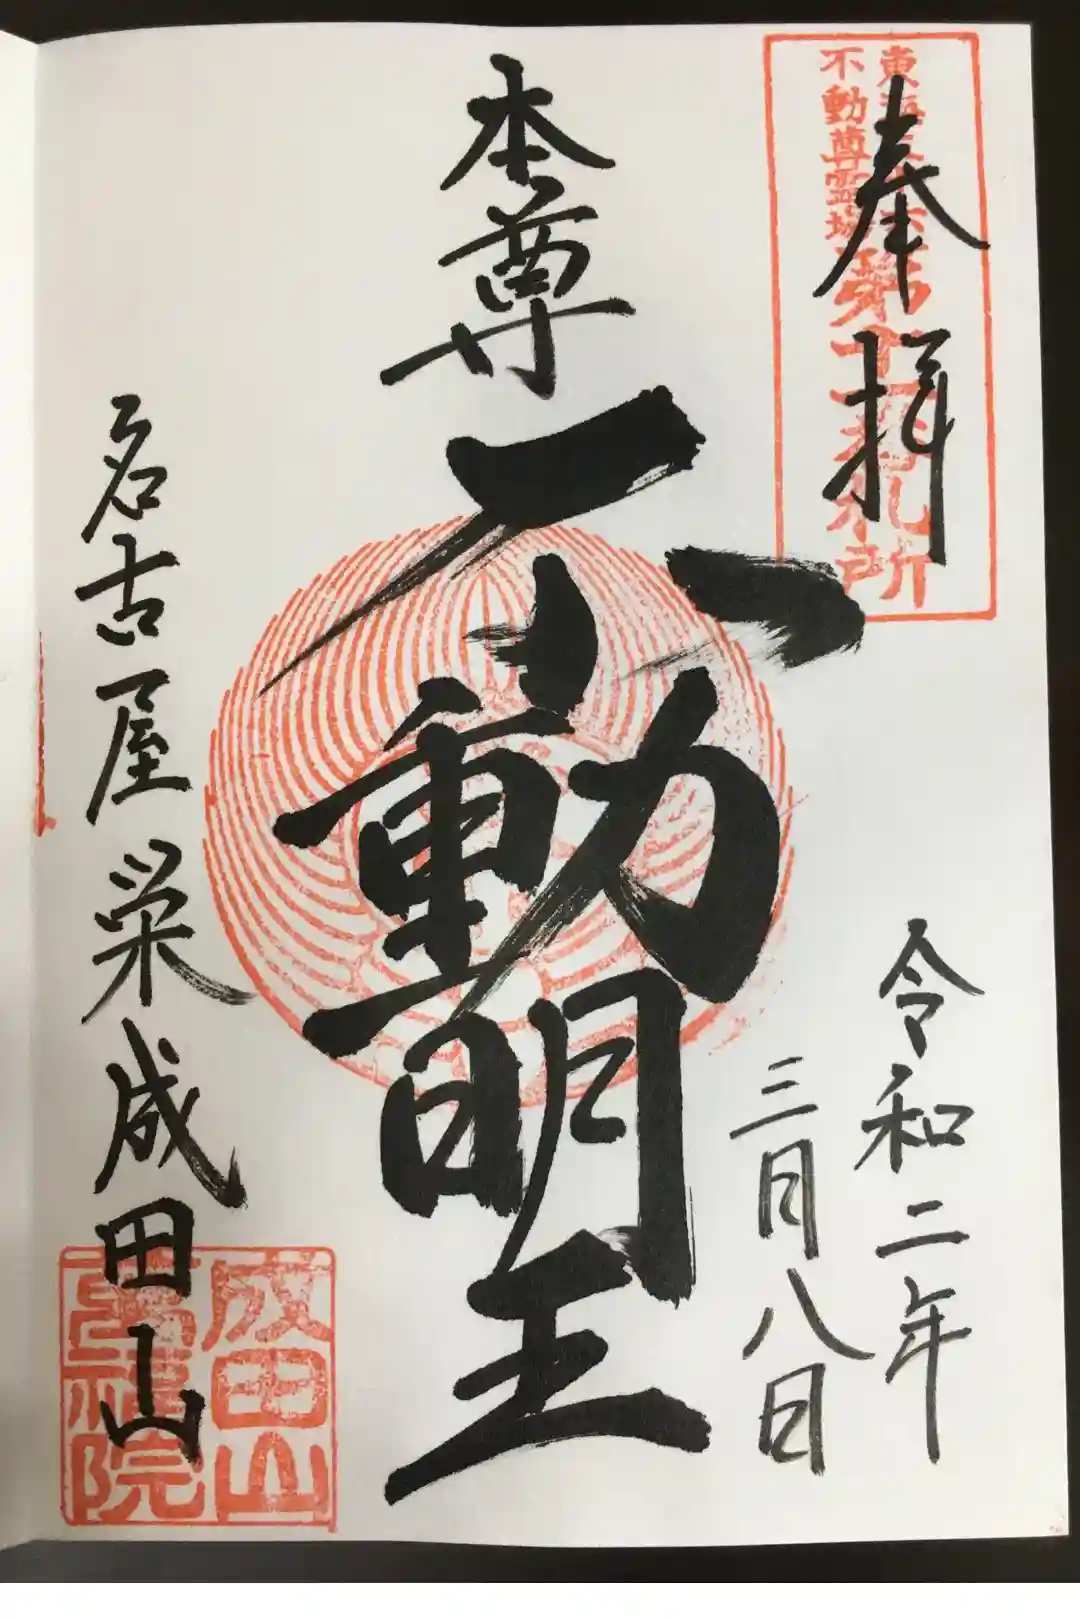 奉拝
東海三十六
不動尊霊場
第十一番札所
令和二年
三月八日
本尊
不動明王
名古屋栄成田山
成田山
萬福院